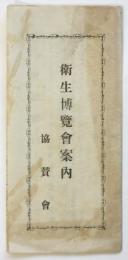 衛生博覽會案內
協贊會